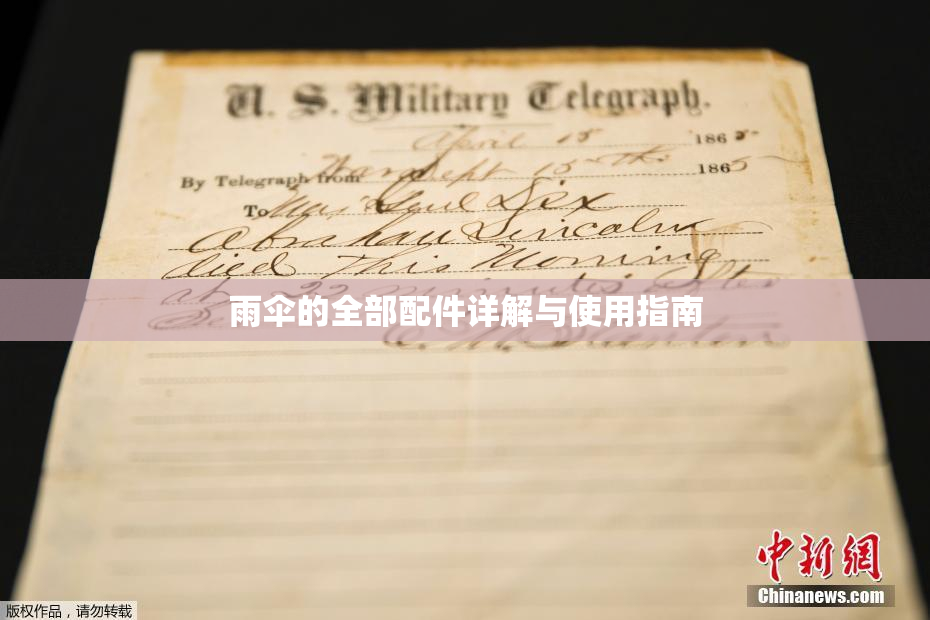 U. S. Military Telegraph.
April 15 1865
By Telegraph from War Dept 15th 1865
To Maj Genl Dix
Abraham Lincoln
died This Morning
at 22 minutes after
雨伞的全部配件详解与使用指南
中新网
Chinanews.com
版权作品，请勿转载